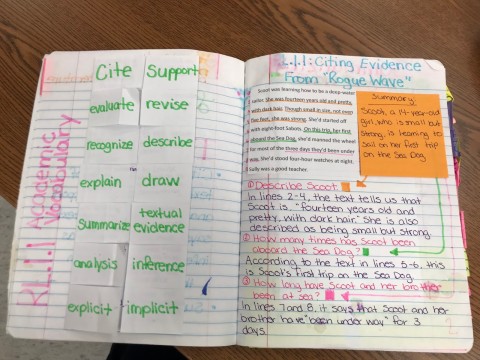 RL.1.1 Academic Vocabulary
Cite Support
evaluate revise
recognize describe
explain draw
summarize textual evidence
analysis inference
explicit implicit
RL.1.1: Citing Evidence
From "Rogue Wave"
Scoot was learning how to be a deep-water
sailor. She was fourteen years old and pretty,
with dark hair. Though small in size, not even
five feet, she was strong. She'd started off
with eight-foot Sabots. On this trip, her first
aboard the Sea Dog, she'd manned the wheel
for most of the three days they'd been under
way. She'd stood four-hour watches at night.
Sully was a good teacher.
Summary:
Scoot, a 14-year-old
girl, who is small but
strong, is learning to
sail on her first trip
on the Sea Dog.
① Describe Scoot.
In lines 2-4, the text tells us that
Scoot is "fourteen years old and
pretty, with dark hair." She is also
described as being small but strong.
② How many times has Scoot been
aboard the Sea Dog?
According to the text in lines 5-6, this
is Scoot's first trip on the Sea Dog.
③ How long have Scoot and her brother
been at sea?
In lines 7 and 8, it says that Scoot and her
brother have "been under way" for 3
days.